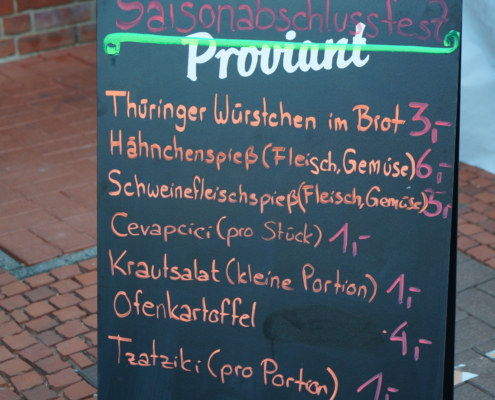 Saisonabschlussfest
Proviant
Thüringer Würstchen im Brot 3,-
Hähnchenspieß (Fleisch, Gemüse) 6,-
Schweinefleischspieß (Fleisch, Gemüse) 5,-
Cevapcici (pro Stück) 1,-
Krautsalat (kleine Portion) 1,-
Ofenkartoffel 4,-
Tzatziki (pro Portion) 1,-